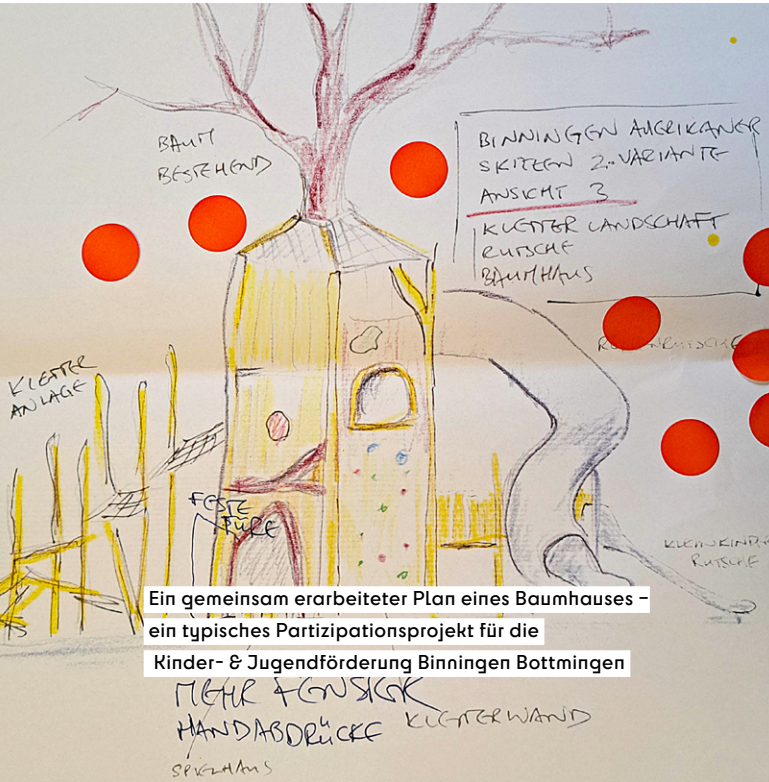 BAUM
BESTEHEND
BINNINGEN AMERIKANER
SKITZEN 2. VARIANTE
ANSICHT 3
KLETTER LANDSCHAFT
RUTSCHE
BAUMHAUS
KLETTER
ANLAGE
FESTE
TÜRE
KLEINKINDER
RUTSCHE
Ein gemeinsam erarbeiteter Plan eines Baumhauses –
ein typisches Partizipationsprojekt für die
Kinder- & Jugendförderung Binningen Bottmingen
MEHR FENSTER
HANDABDRÜCKE
KLETTERWAND
SPIELHAUS